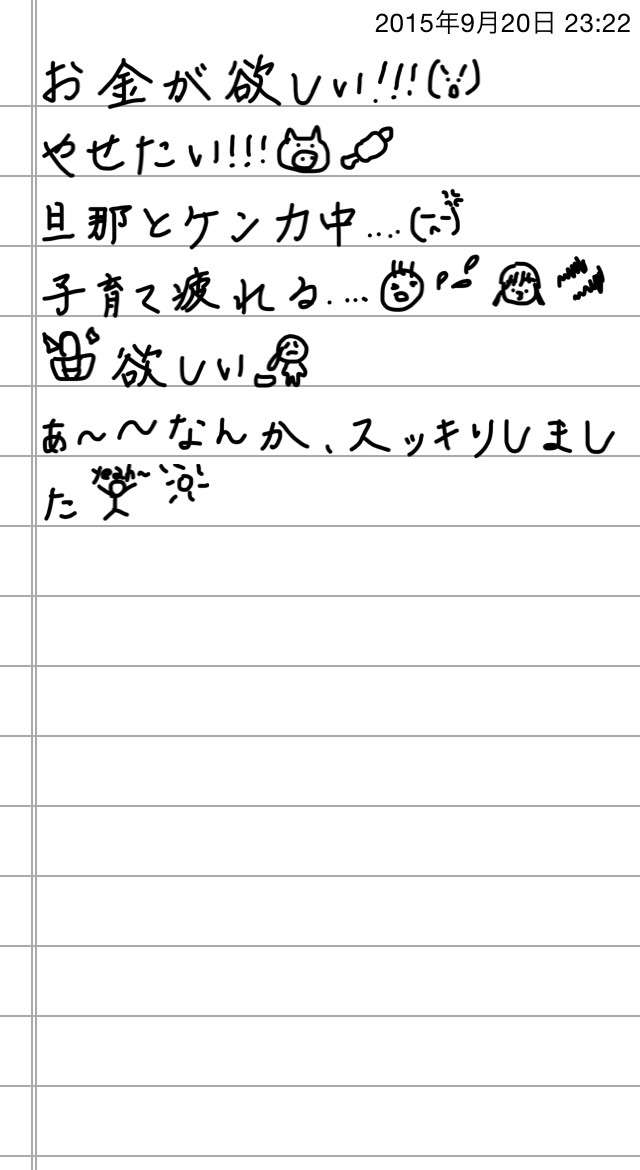 2015年9月20日 23:22
お金が欲しい!!!
やせたい!!!
旦那とケンカ中....
子育て疲れる....
欲しい
ぁ〜〜なんか、スッキリしまし
た yeah~